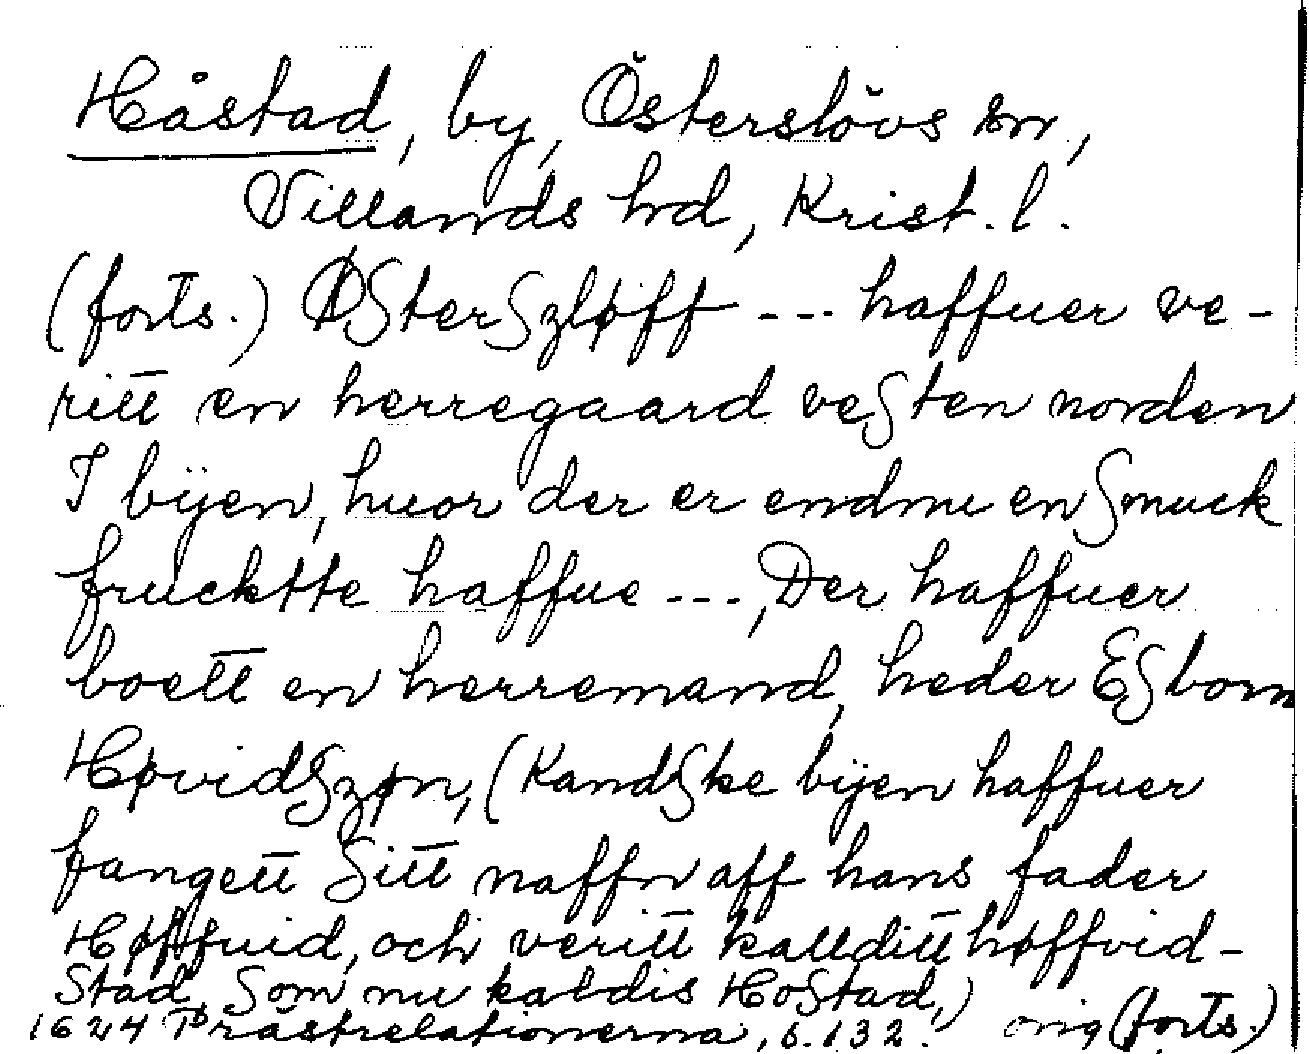 Håstad, by, Österslövs sn,
Villands hd, Krist. l.
(forts.) Østerszløff --- haffuer ve-
ritt en herregaard vesten norden
I bÿen, huor der er endnu en smuck
frucktte haffue ---, Der haffuer
boett en herremand, heder Esborn
Høvidszøn, (Kandske bÿen haffuer
fangett sitt naffn aff hans fader
Høffuid, och veritt kallditt høffvid-
stad, som nu kaldis Hostad,)
1624 Prästrelationerna, s. 132. orig (forts.)